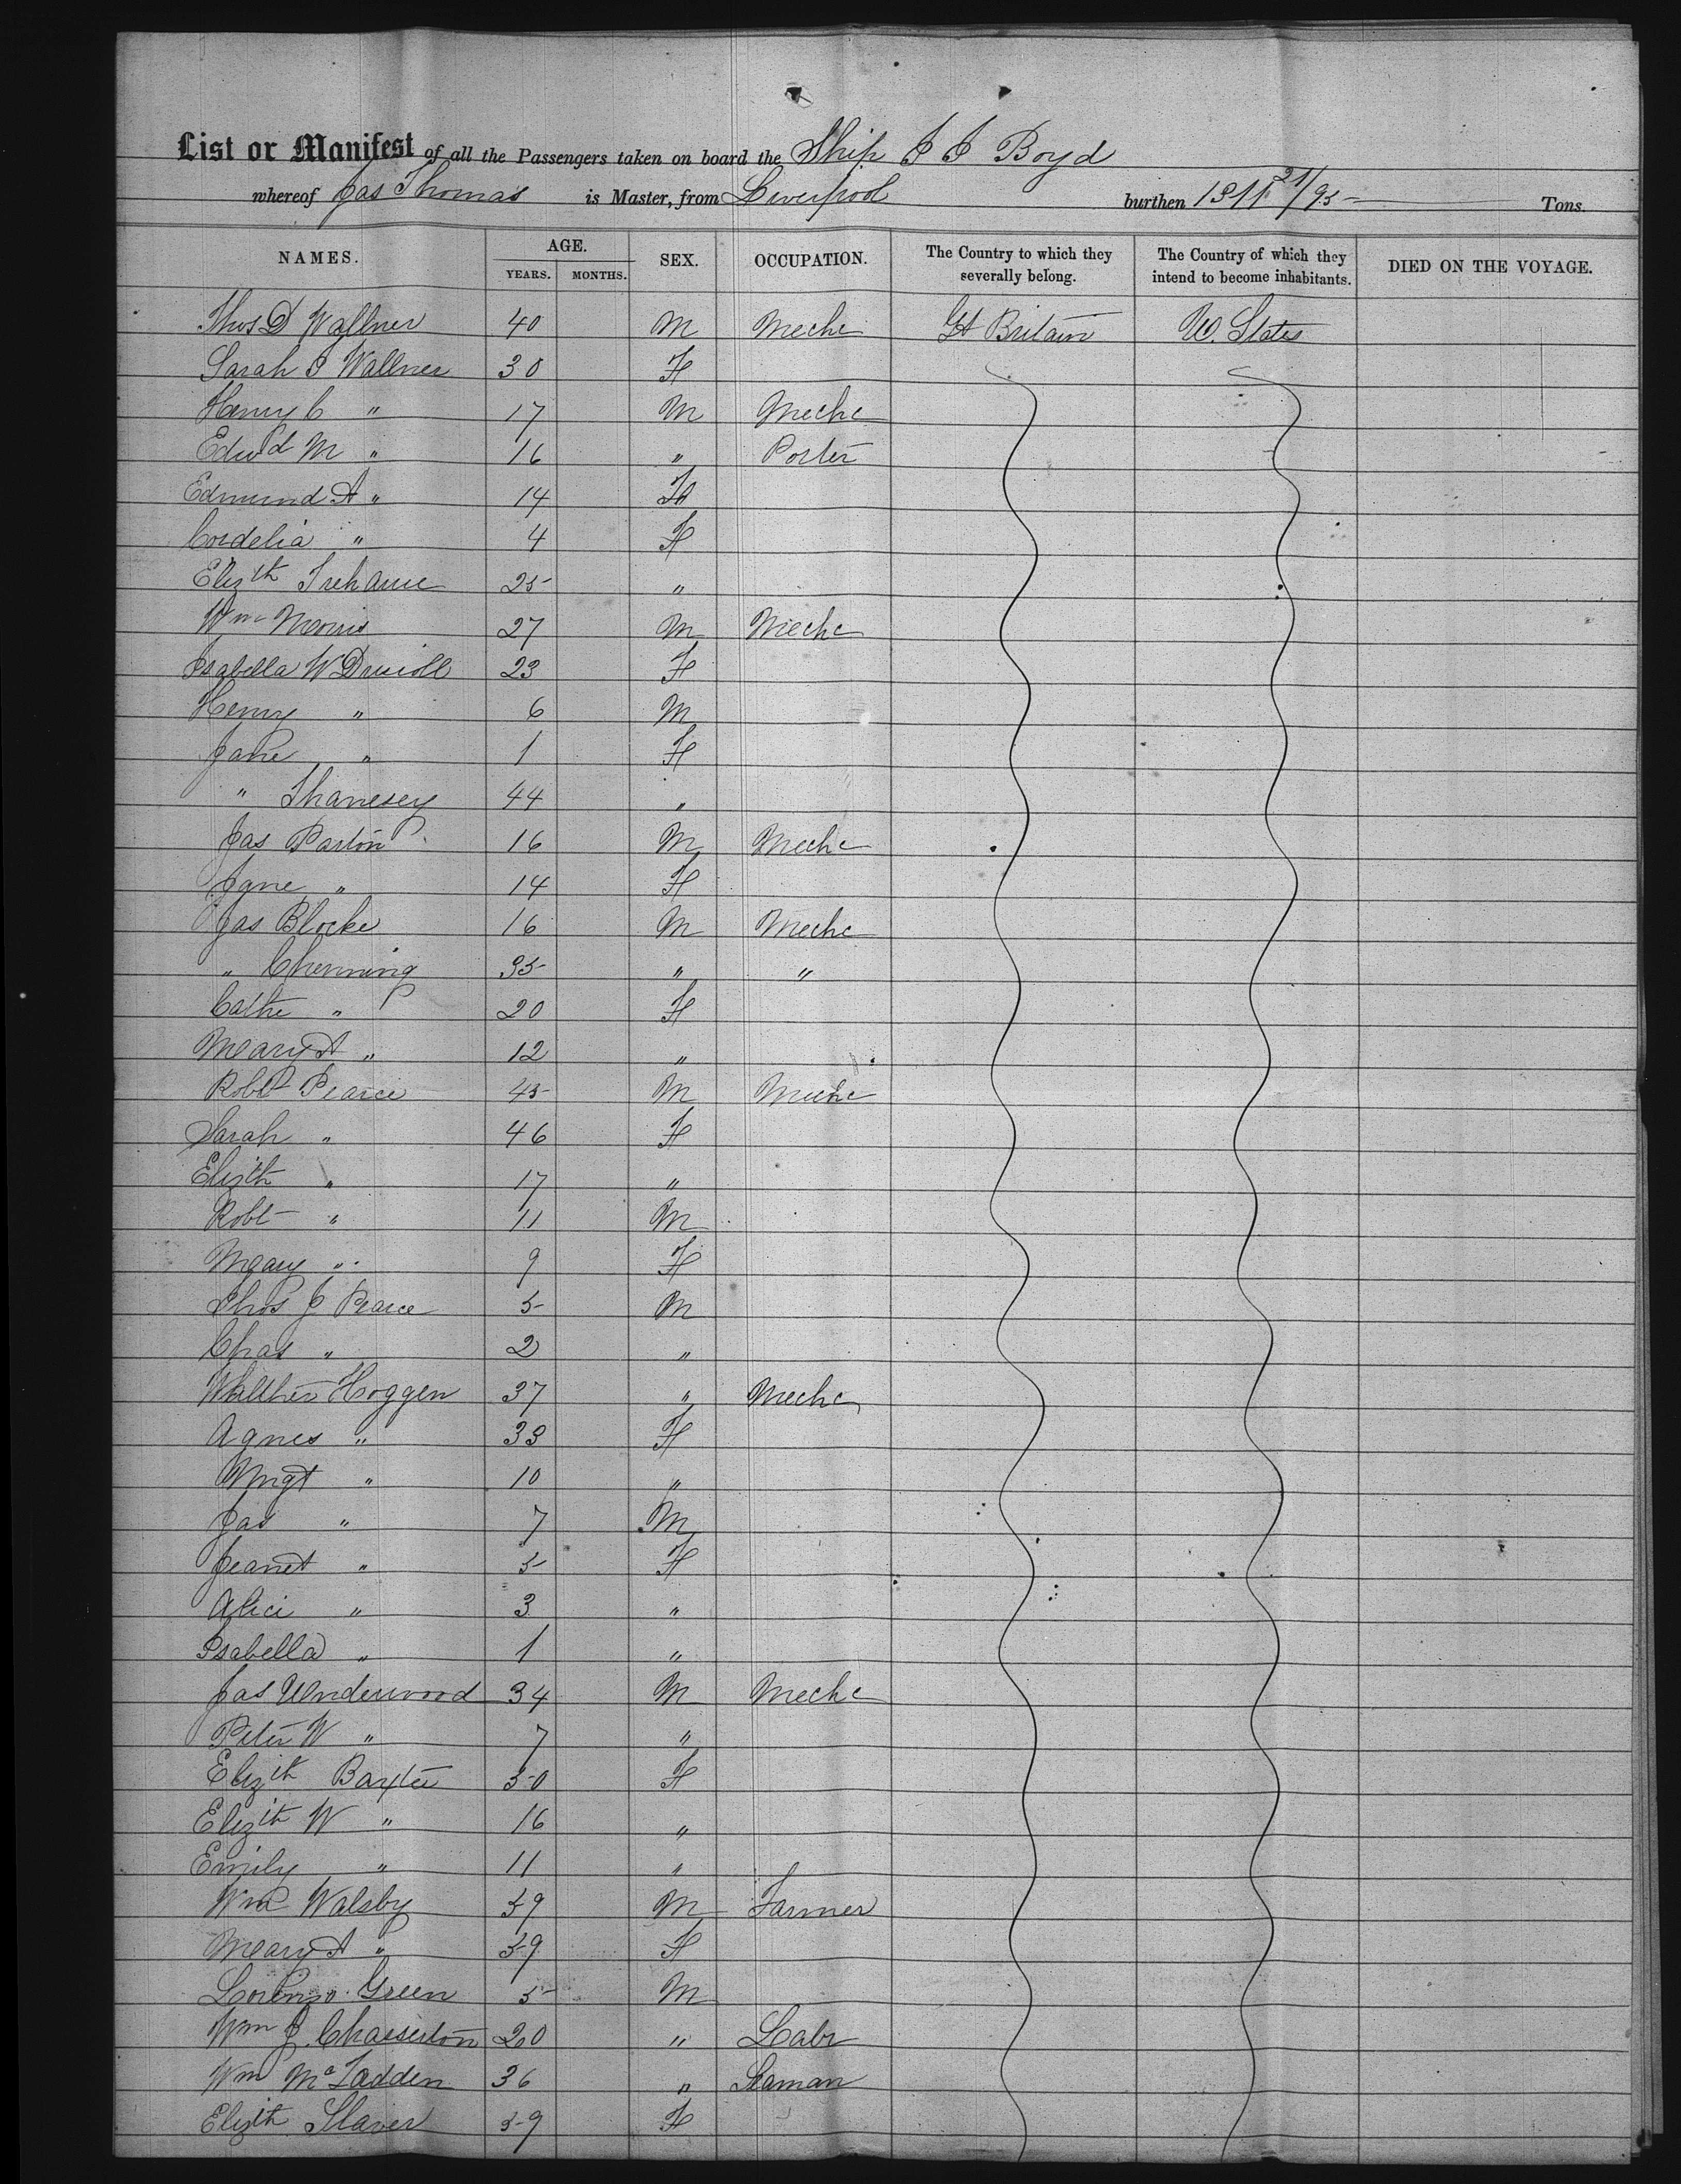 List or Manifest of all the Passengers taken on board the Ship J J Boyd
whereof Jas Thomas is Master, from Liverpool burthen 1311 21/95 Tons.
NAMES. AGE. YEARS. MONTHS. SEX. OCCUPATION. The Country to which they severally belong. The Country of which they intend to become inhabitants. DIED ON THE VOYAGE.
Thos D Wallner 40 M Mechc Gt Britain U. States
Sarah J Wallner 30 F
Henry C " 17 M Mechc
Edwd M " 16 " Porter
Edmund A " 14
Cordelia " 4 F
Elizth Trehane 25 "
Wm Morris 27 M Mechc
Isabella W Driscoll 23 F
Henry " 6 M
Jane " 1 F
" 44 "
Jas Parton 16 M Mechc
Jane " 14 F
Jas Blocke 16 M Mechc
" Chenning 35 " "
Cathe " 20 F
Mary A " 12 "
Robt Pearce 45 M Mechc
Sarah " 46 F
Elizth " 17 "
Robt " 11 M
Mary " 9 F
Thos J Pearce 5 M
Chas " 2 "
Walther Hoggen 37 " Mechc
Agnes " 33 F
Mrgt " 10 "
Jas " 7 M
Jeanet " 5 F
Alice " 3 "
Isabella " 1 "
Jas Underwood 34 M Mechc
Peter W " 7 "
Elizth Baxter 50 F
Elizth W " 16 "
Emily " 11 "
Wm Walsby 59 M Farmer
Mary A " 59 F
Lorenzo Green 5 M
Wm J. Chasserton 20 " Labr
Wm McFadden 36 " Seaman
Elizth Slaver 59 F